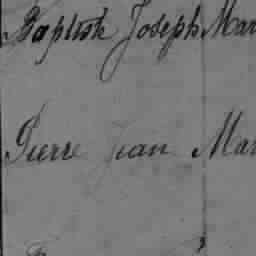 Baptist Joseph Mar
Pierre Jean Mar